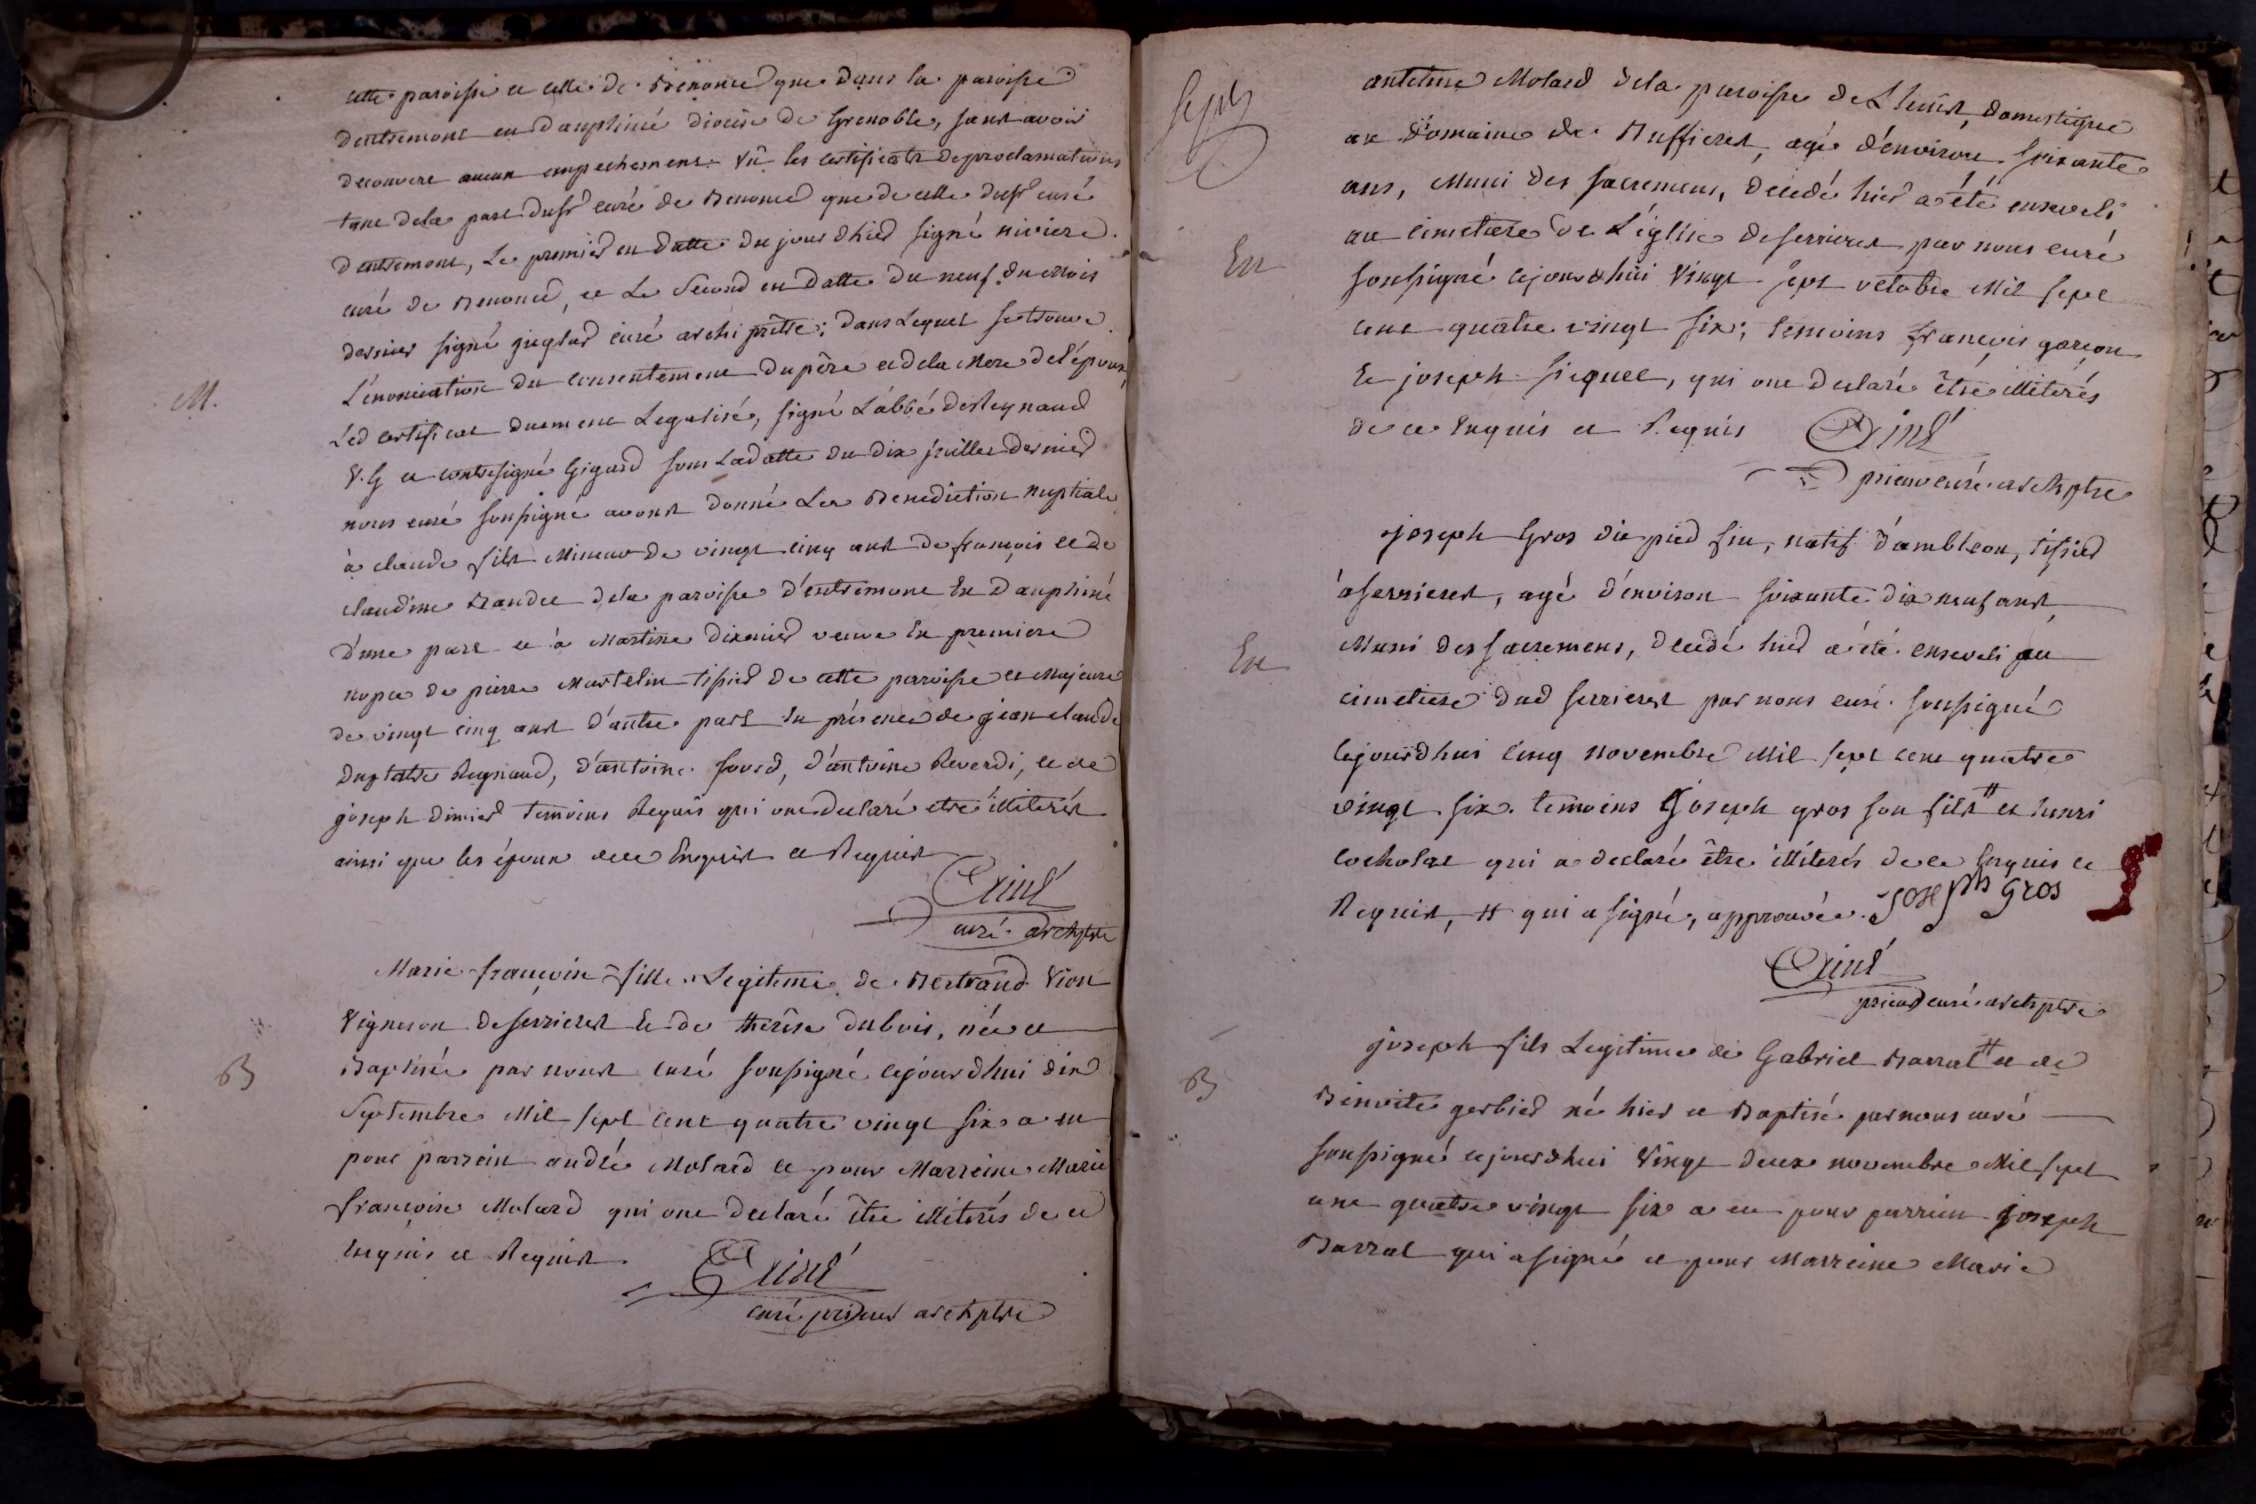 cette paroisse et celle de Benonce que dans la paroisse
dentremont en dauphiné diocèse de Grenoble, sans avoir
decouvert aucun empechement. Vû les certificats de proclamations
tant dela part dusr curé de Benonce que de celle dusr curé
dentremont, Le premier en datte du jour dhier signé riviere
curé de Benonce, et Le Second en datte du neuf du mois
dernier signé juglar curé archi prêtre; dans Lequel se trouve
L'enonciation du consentement du père et dela Mere de l'époux,
Led certificat duement Legalisé, signé L'abbé de Reynaud
V.G et contresigné Gigard sous Ladatte du dix juillet dernier
nous curé soussigné avons donné La Benediction nuptiale
à claude fils Mineur de vingt cinq ans de françois et de
claudine Bandet dela paroisse d'entremont En Dauphiné
d'une part et à Martine Dimier veuve En premiere
nopce de pierre Martelin tissier de cette paroisse et Majeure
de vingt cinq ans d'autre part En présence de jean claude
Duplatre Regnaud, d'antoine Sourd, d'antoine Reverdi, et de
joseph dimier temoins Requis qui ont declaré etre illiterés
ainsi que les époux de ce Enquis et Requis
Criné
curé archiptre
M.
Marie françoise fille Legitime de Bertrand Vion
Vigneron de serrieres Et de therèse dubois, née et
Baptisée par nous curé soussigné cejourdhui dix
Septembre Mil sept cent quatre vingt six a eu
pour parrein andré Molard et pour Marreine Marie
françoise Molard qui ont declaré être illiterés de ce
enquis et Requis.
Criné
curé prieur archiptre
B
Sept
antelme Molard dela paroisse de Lhuis, domestique
au Domaine de Buffieres, agé d'environ soixante
ans, Muni des sacremens, decedé hier a été enseveli
au cimetiere de L'église de serrieres par nous curé
soussigné cejourdhui vingt sept octobre Mil sept
cent quatre vingt six; temoins françois garçon
Et joseph siquet, qui ont declaré être illiterés
de ce Enquis et Requis
Criné
prieur curé archiptre
En
joseph Gros dit pied fin, natif d'ambleon, tissier
à serrieres, agé d'environ soixante dix neuf ans,
Muni des sacremens, decedé hier a été enseveli au
cimetiere dud serrieres par nous curé soussigné
cejourdhui cinq novembre Mil sept cent quatre
vingt six. temoins joseph gros son fils # et henri
cocholat qui a declaré être illiterés de ce Enquis et
Requis, # qui a signé, approuvée. joseph gros
Criné
prieur curé archiptre
En
joseph fils Legitime de Gabriel Barral # et de
Benoite gerbier né hier et Baptisé par nous curé
soussigné cejourdhui Vingt deux novembre Mil sept
cent quatre vingt six a eu pour parrein joseph
Barral qui a signé et pour Marreine Marie
B